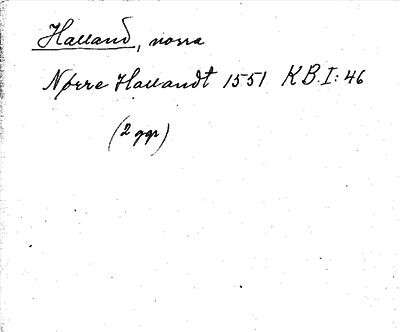 Halland, norra
Nørre Hallandt 1551 KB.I:46
(2 ggr)